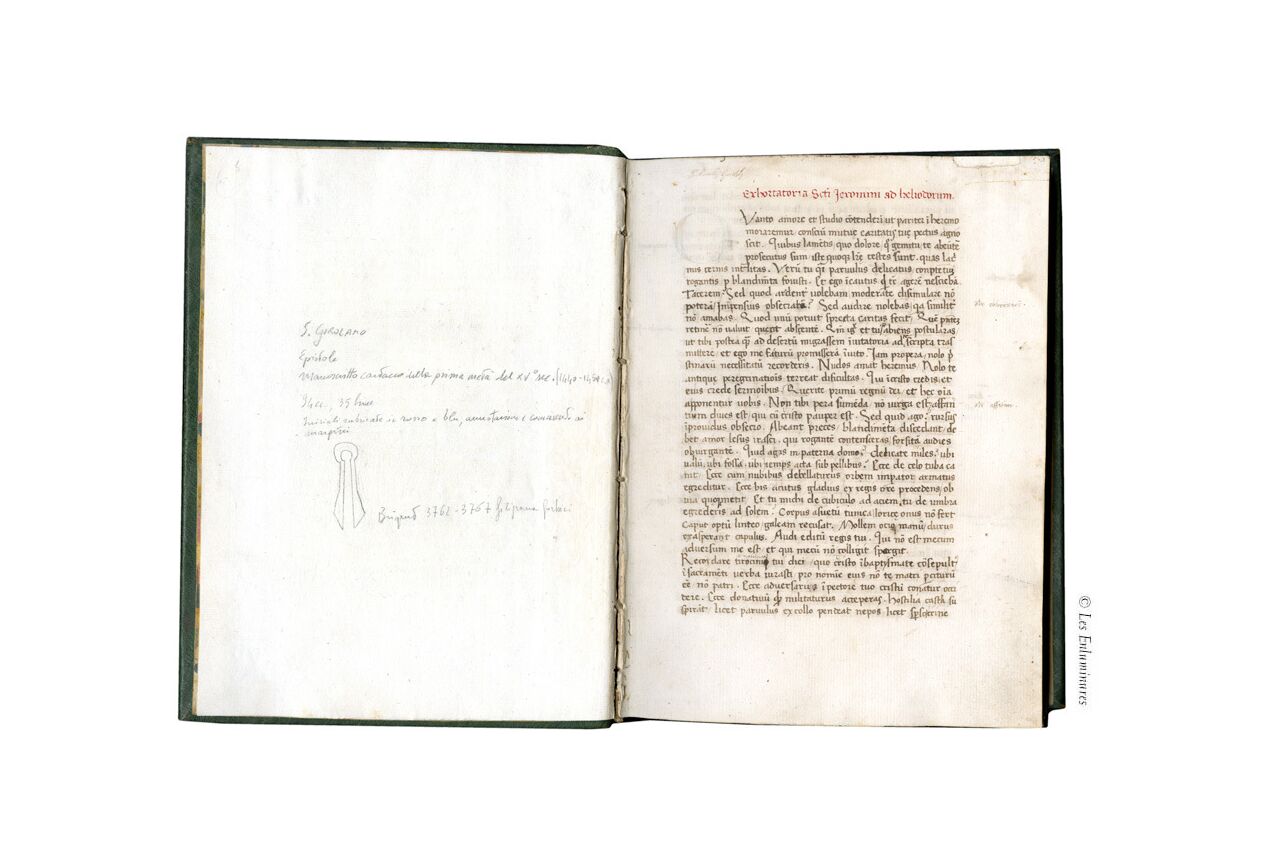 S. GIROLAMO
Epistole
manoscritto cartaceo della prima metà del XV° sec. (1440-1450
35 linee
Iniziali rubricate in rosso e blu, annotazioni e commento ai
margini
Briquet 3762-3767
Exhortatoria Scti Jeronimi ad heliodorum.
Vanto amore et studio cōtenderī ut pariter ī heremo
moraremur consciū mutue caritatis tue pectus agno
scit. Quibus lamētis quo dolore q̄ gemitu te abeūtē
prosecutus sum iste quoqȝ lr̄e testes sunt. quas lac
mis cernis int̄litas. Verū tu q̄i paruulus delicatus
rogantis p̄ blandimēta fouisti. Et ego īcautus qd t̄r agerē nesciebā
Tacerem? Sed quod ardent̄ volebam moderate disimulare nō
poterā. Impensius obsecrarē? Sed audire nolebas, qa similit̄
nō amabas. Quod unū potuit spreta caritas fecit.
retinē nō ualuit querit absentē. et tu abiens postularas
ut tibi postea q̄ ad desertū migrassem īuitatoria ad scripta tras
mitterē et ego me facturū promisserā īuito. Iam propera, nolo p̄
stinarū necessitatū recorderis. Nudos amat heremus. Nolo te
antique peregrinatiōis terreat dificultas. Qui ī cristo credis, et
eius crede sermoībus. Querite primū regnū dei, et hec oīa
apponentur uobis. Non tibi pera sumēda, nō uirga est, affatī
tum diues est, qui cū cristo pauper est. Sed quid ago? rursus
īprouidus obsecro. Abeant preces, blandimēta discedant, de
bet amor lesus irasci, qui rogantē contenseras, forsitā audies
obiurgantē. Quid agis in paterna domo? delicate miles? ubi
uallū, ubi fossa, ubi iemps acta sub pellibus? Ecce de celo tuba ca
nit. Ecce cum nubibus debellaturus orbem impator armatus
egreditur. Ecce bis acutus gladius ex regis ore procedens, ob
uia queqȝ metit. Et tu michi de cubiculo ad aciem, tu de umbra
egrederis ad solem? Corpus asuetu tunica, lorice onus nō fert
Caput optū linteo, galeam recusat. Mollem ocio manū, durus
exasperant capulus. Audi edictū regis tui. Qui nō est mecum
aduersum me est, et qui mecū nō colligit spergit.
Recordare tirocinii tui diē, quo cristo ī baptysmate cōsepult̄
ī sacramēti verba iurasti pro nomīe eius nō te matri p̄citurū
eē nō patri. Ecce aduersarius ī pectore tuo cristū conatur occi
dere. Ecce donatiuū qd militaturus acceperas, hostilia castra su
spirāt, licet paruulus ex collo pendeat nepos licet
© Les Enluminures